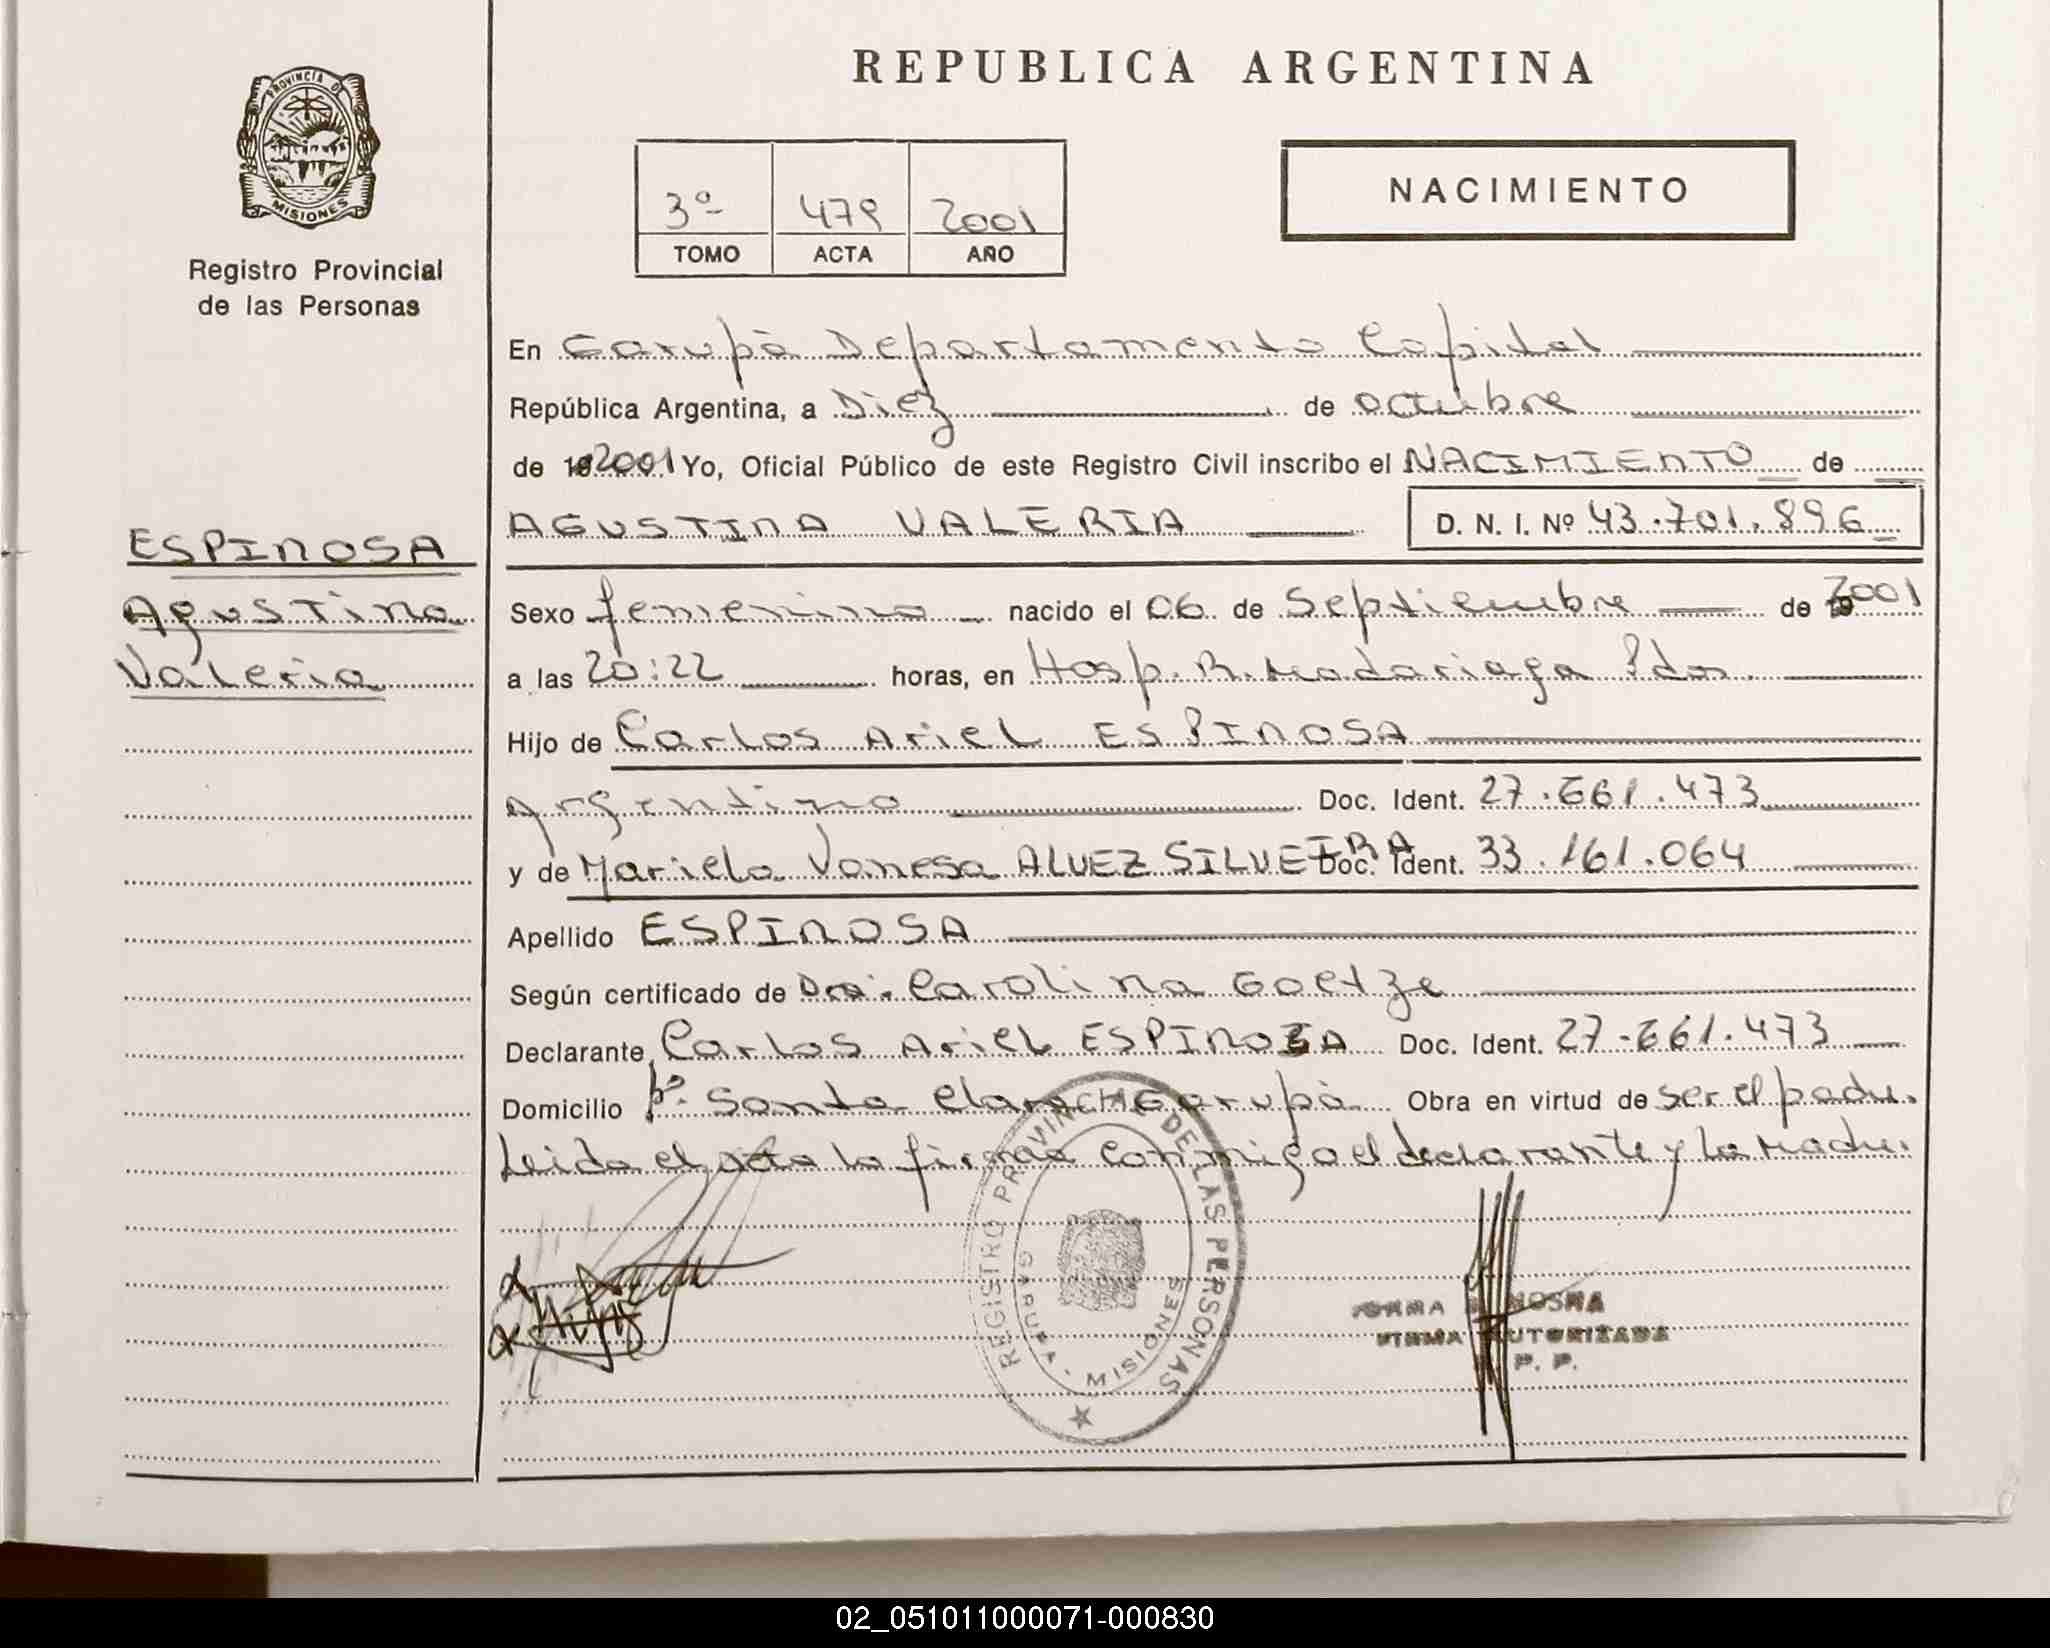 REPUBLICA ARGENTINA
PROVINCIA DE
MISIONES
Registro Provincial
de las Personas
NACIMIENTO
3º 479 2001
TOMO ACTA AÑO
En Garupá Departamento Capital
República Argentina, a Diez de octubre
de 2001 Yo, Oficial Público de este Registro Civil inscribo el NACIMIENTO de
AGUSTINA VALERIA D. N. I. Nº 43.701.896
ESPINOSA
Agustina
Valeria
Sexo femenino nacido el 06 de Septiembre de 2001
a las 20:22 horas, en Hosp. R. Madariaga Pdas.
Hijo de Carlos Ariel ESPINOSA
Argentino Doc. Ident. 27.661.473
y de Mariela Vanesa ALVEZ SILVEIRA Doc. Ident. 33.161.064
Apellido ESPINOSA
Según certificado de Dra. Carolina Goetze
Declarante Carlos Ariel ESPINOSA Doc. Ident. 27-661.473
Domicilio Bº Santa Clara Garupá Obra en virtud de ser el padre.
Leida el acta la firman conmigo el declarante y la Madre.
REGISTRO PROVINCIAL DE LAS PERSONAS
GARUPA - MISIONES
FIRMA AUTORIZADA
02_051011000071-000830